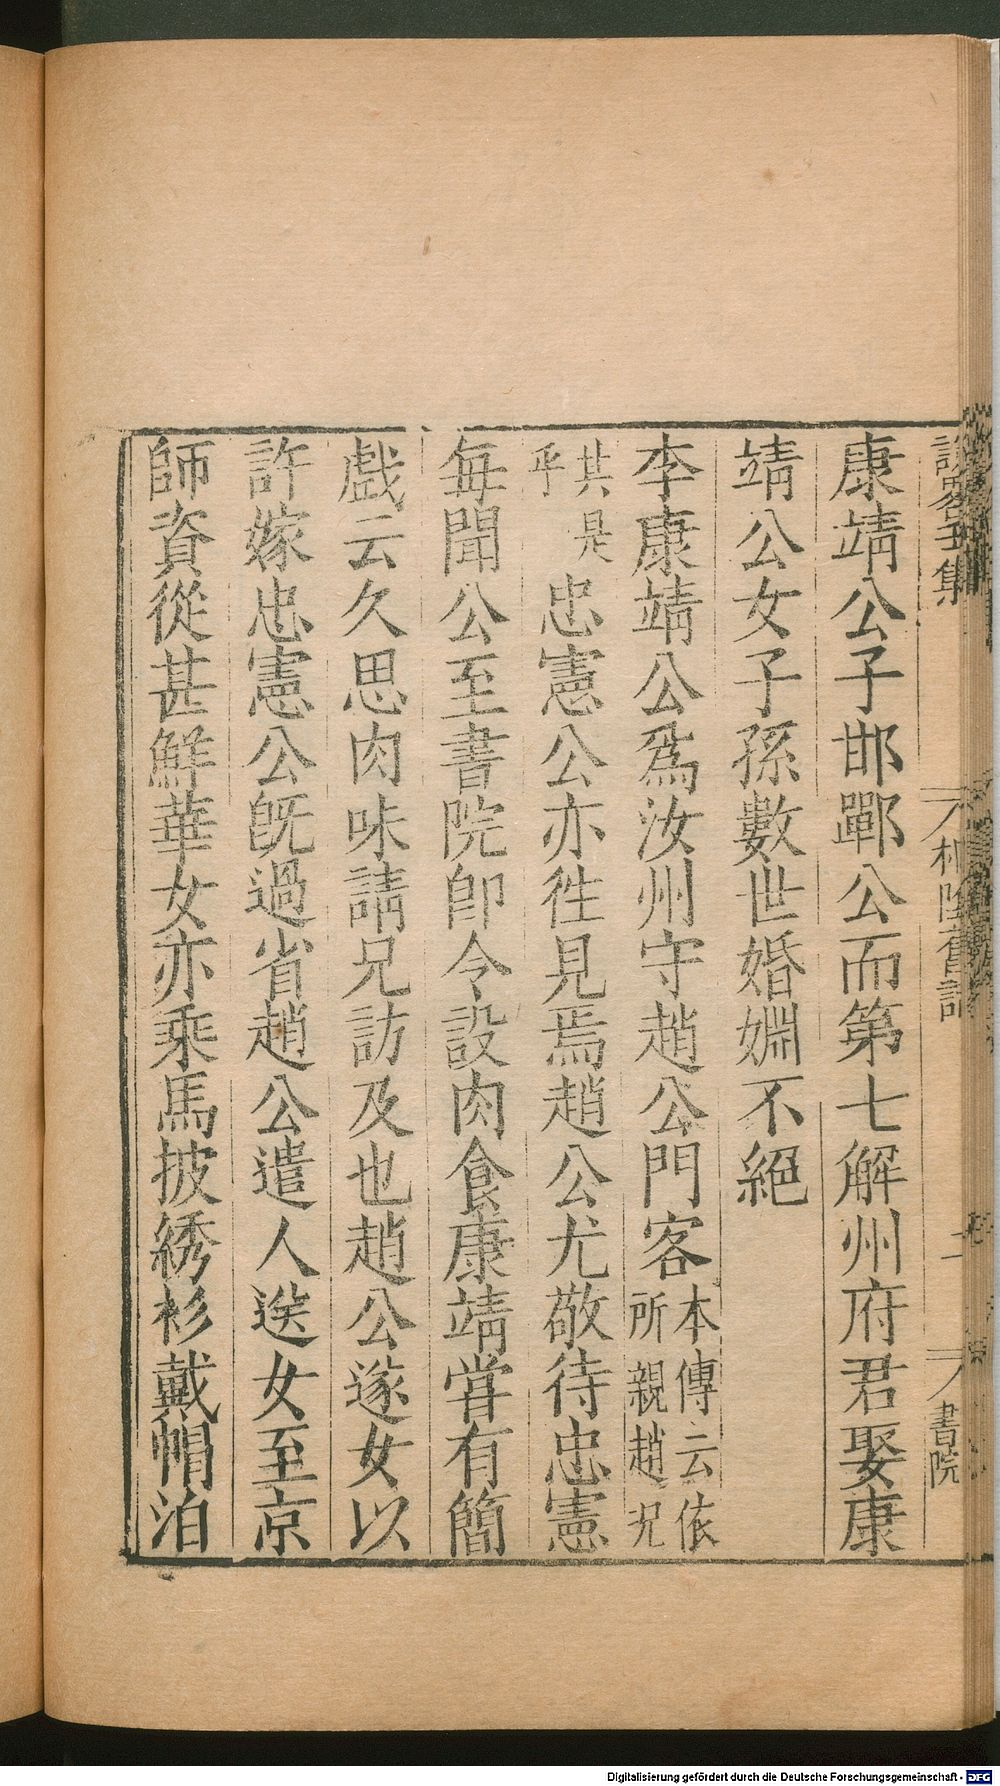 康靖公子邯鄲公而第七解州府君娶康
靖公女子孫數世婚婣不絕
李康靖公爲汝州守趙公門客本傳云依所親趙况
其是乎忠憲公亦徃見焉趙公尤敬待忠憲
每聞公至書院卽令設肉食康靖甞有簡
戲云久思肉味請兄訪及也趙公遂女以
許嫁忠憲公旣過省趙公遣人送女至京
師資從甚鮮華女亦乘馬披綉衫戴帽泊
桐陰舊話
二
書院
Digitalisierung gefördert durch die Deutsche Forschungsgemeinschaft - DFG